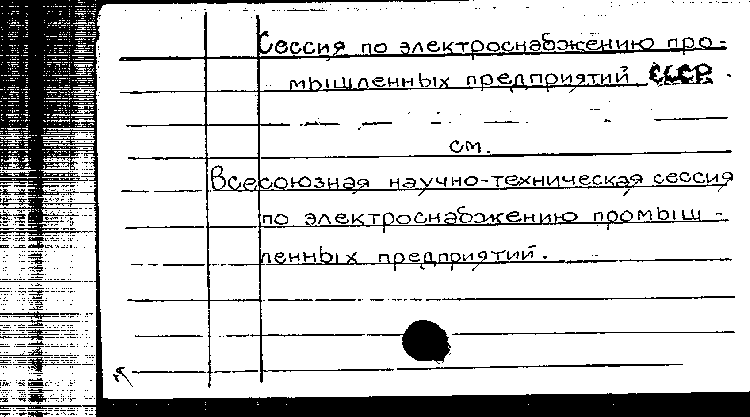 Сессия по электроснабжению про-
мышленных предприятий СССР.
см.
Всесоюзная научно-техническая сессия
по электроснабжению промыш-
ленных предприятий.